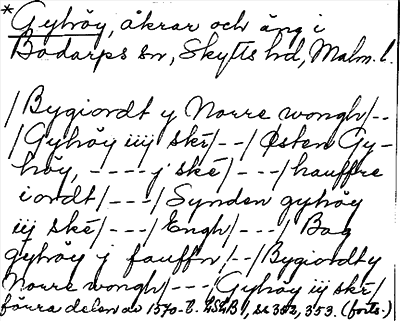 *Gyhöy, åkrar och äng i
Bodarps sn, Skytts hd, Malm. l.
/Bygiordt y Norre wongh/--
/Gyhöy iiij skė/--/Østen Gy-
höy, ---- j skė/---/hauffre
iordt/---/Synden gyhöy
iij skė/---/Engh/---/Bag
gyhöy j fauffn/--/Bygiordt y
Norre wongh/---/Gyhöy iij skė/
förra delen av 1570-t. LSGB 1, ss 352, 353. (forts.)